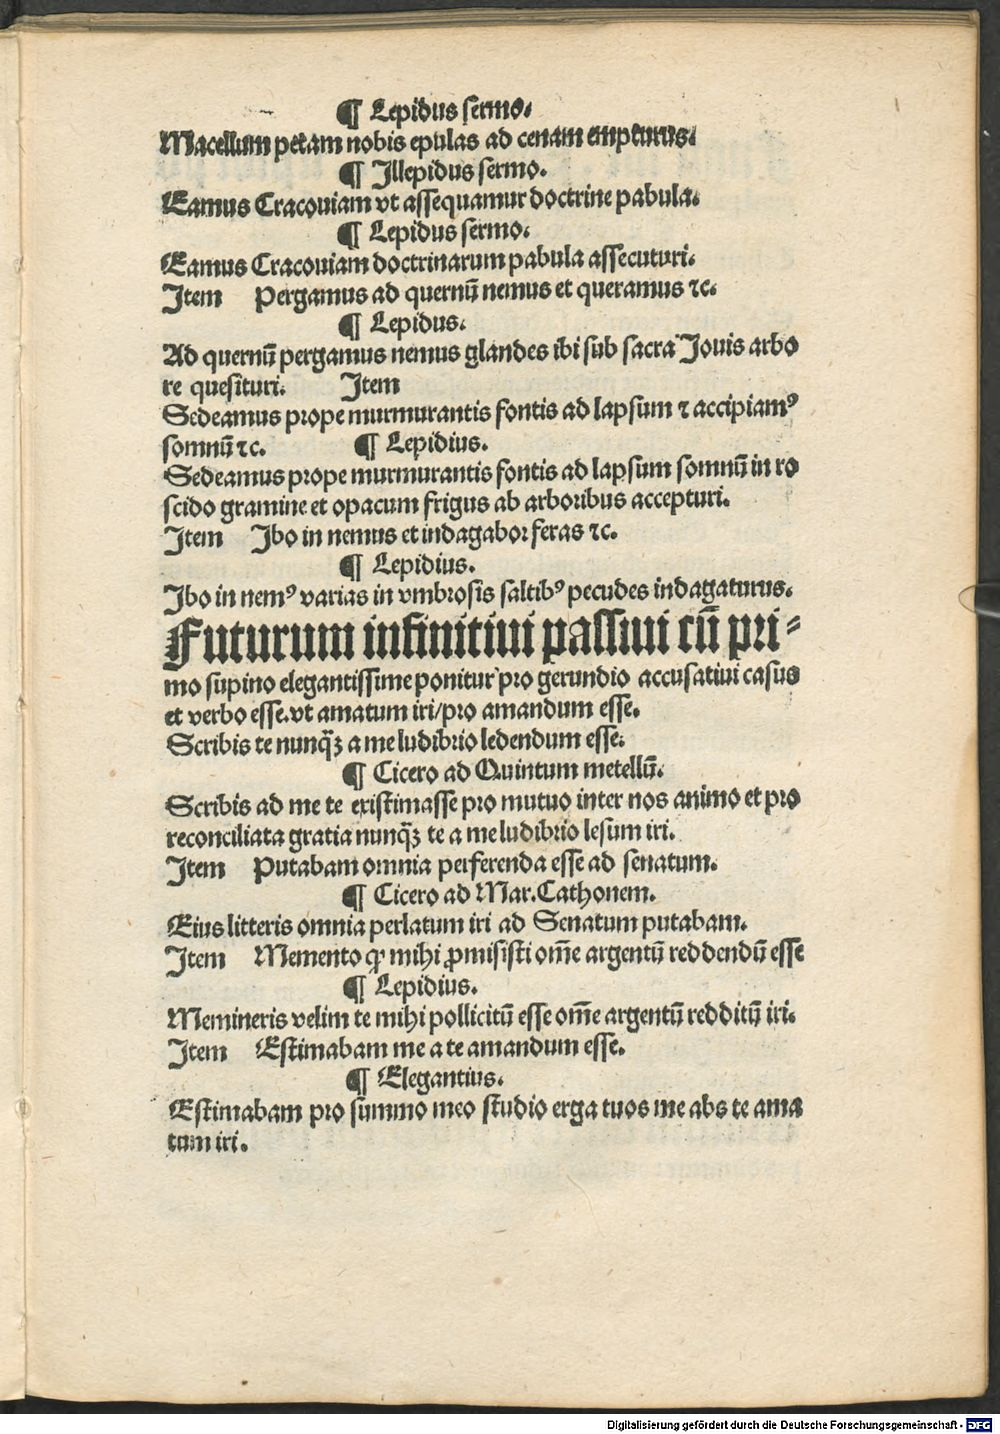 ¶ Lepidus sermo.
Macellum petam nobis epulas ad cenam empturus.
¶ Illepidus sermo.
Eamus Cracouiam vt assequamur doctrine pabula.
¶ Lepidus sermo.
Eamus Cracouiam doctrinarum pabula assecuturi.
Item Pergamus ad quernū nemus et queramus ⁊c.
¶ Lepidus.
Ad quernū pergamus nemus glandes ibi sub sacra Jouis arbo
re quesituri. Item
Sedeamus prope murmurantis fontis ad lapsum ⁊ accipiamꝰ
somnū ⁊c. ¶ Lepidius.
Sedeamus prope murmurantis fontis ad lapsum somnū in ro
scido gramine et opacum frigus ab arboribus accepturi.
Item Ibo in nemus et indagabor feras ⁊c.
¶ Lepidius.
Ibo in nemꝰ varias in vmbrosis saltibꝰ pecudes indagaturus.
Futurum infinitiui passiui cū pri-
mo supino elegantissime ponitur pro gerundio accusatiui casus
et verbo esse. vt amatum iri/pro amandum esse.
Scribis te nunq̄ꝫ a me ludibrio ledendum esse.
¶ Cicero ad Quintum metellū.
Scribis ad me te existimasse pro mutuo inter nos animo et pro
reconciliata gratia nunq̄ꝫ te a me ludibrio lesum iri.
Item Putabam omnia perferenda esse ad senatum.
¶ Cicero ad Mar. Cathonem.
Eius litteris omnia perlatum iri ad Senatum putabam.
Item Memento ꝙ mihi ꝓmisisti om̄e argentū reddendū esse
¶ Lepidius.
Memineris velim te mihi pollicitū esse om̄e argentū redditū iri.
Item Estimabam me a te amandum esse.
¶ Elegantius.
Estimabam pro summo meo studio erga tuos me abs te ama
tum iri.
Digitalisierung gefördert durch die Deutsche Forschungsgemeinschaft - DFG